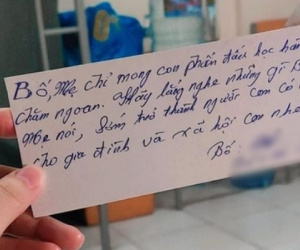 Bố, Mẹ chỉ mong con phấn đấu học hàn
Chăm ngoan. Hãy lắng nghe những gì B
Mẹ nói, Sớm trở thành người. Con có
cho gia đình và xã hội con nhe
Bố: